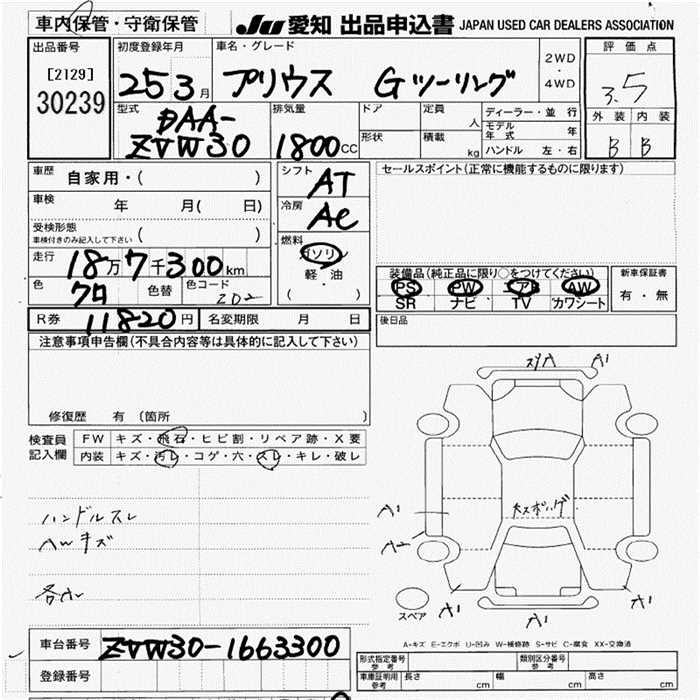 車内保管・守衛保管
JU 愛知 出品申込書 JAPAN USED CAR DEALERS ASSOCIATION
出品番号
[2129]
30239
初度登録年月
25 3 月
車名・グレード
プリウス Gツーリング
2WD
・
4WD
評価点
3.5
外装 内装
B B
型式
DAA-
ZVW30
排気量
1800 CC
ドア
形状
定員
人
積載
kg
ディーラー・並行
モデル年式 年
ハンドル 左・右
車歴
自家用・( )
車検
年 月( 日)
受検形態
車検付きのみ記入して下さい ( )
走行
18万7千300km
色
クロ
色替
色コード
202
シフト
AT
冷房
AC
燃料
ガソリン
軽・油
( )
セールスポイント(正常に機能するものに限ります)
装備品(純正品に限り○をつけてください)
PS PW エアB AW
SR ナビ TV カワシート
新車保証書
有・無
後日品
R券 11820円
名変期限 月 日
注意事項申告欄(不具合内容等は具体的に記入して下さい)
修復歴 有 〔箇所 〕
検査員
記入欄
FW キズ・飛石・ヒビ割・リペア跡・X要
内装 キズ・汚レ・コゲ・穴・スレ・キレ・破レ
ハンドルスレ
AWキズ
各小
スリA A1
A1
A2
A1
A1
A1
スペア
A-キズ E-エクボ U-凹み W-補修跡 S-サビ C-腐食 XX-交換済
車台番号
ZVW30-1663300
登録番号
形式指定番号
参考
類別区分番号
参考
車庫証明用
参考
長さ cm 幅 cm 高さ cm